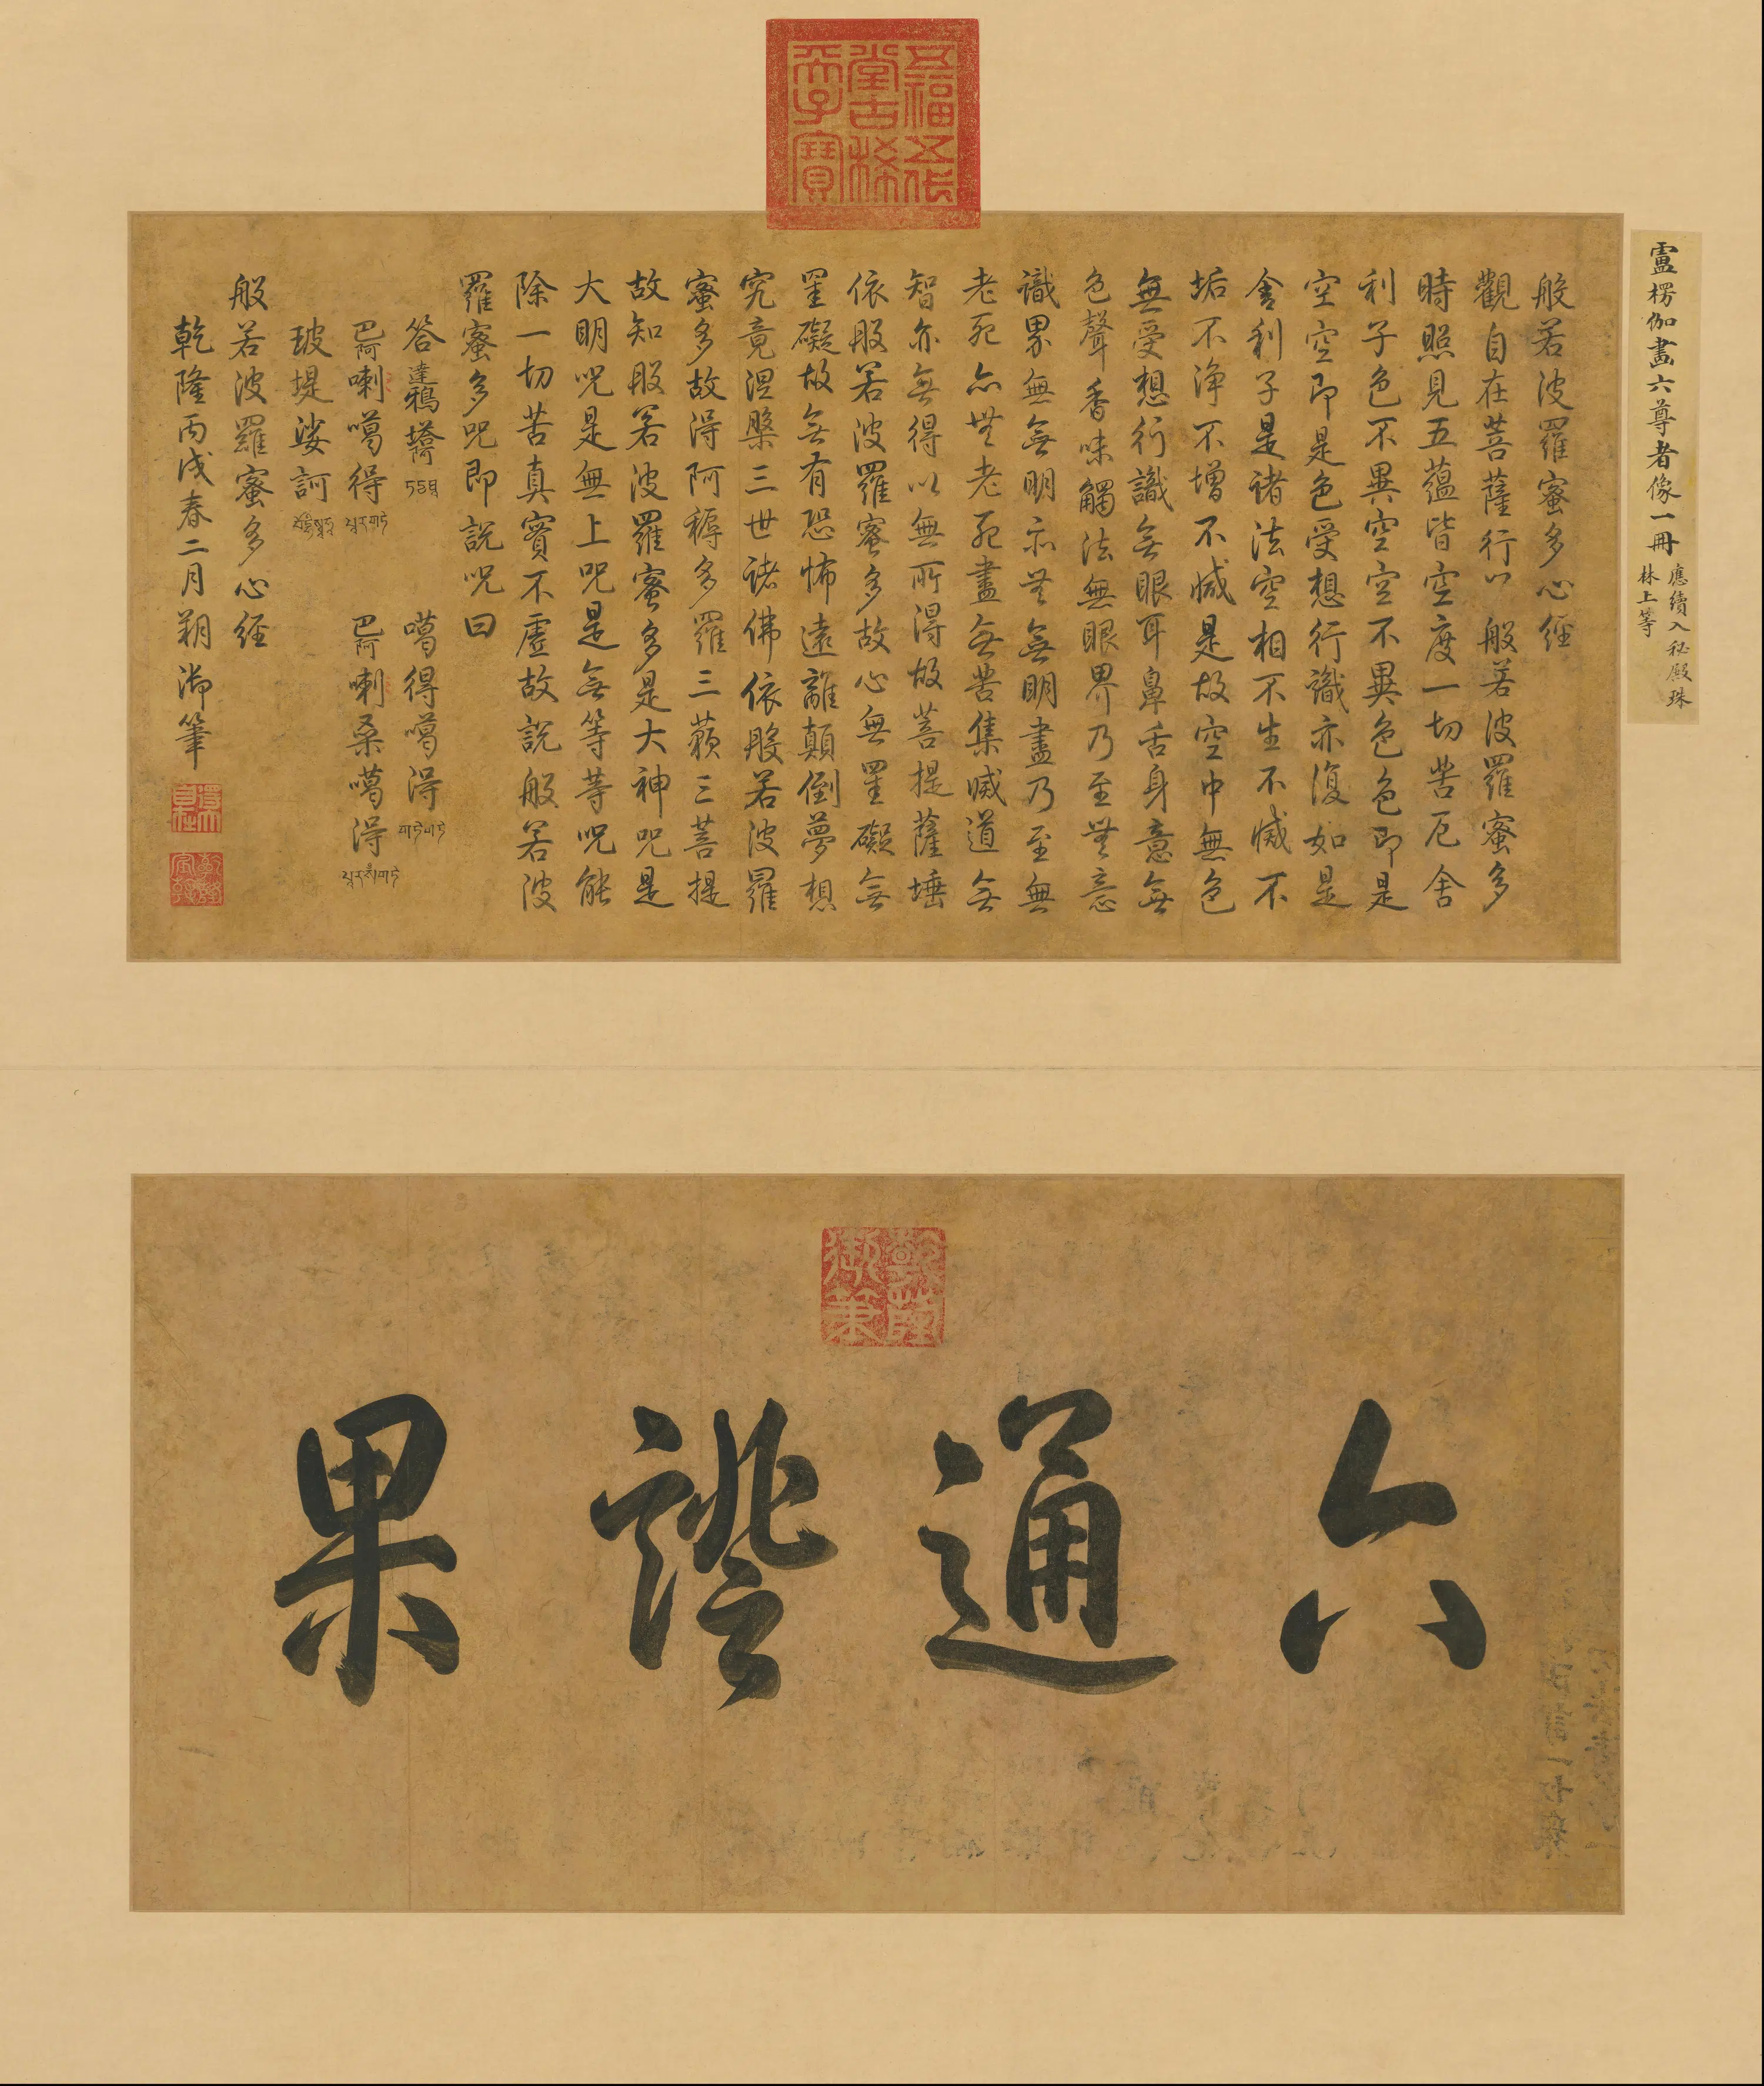 五福五代
堂古稀
天子寶
盧楞伽畫六尊者像一冊
應續入秘殿珠
林上等
般若波羅蜜多心經
觀自在菩薩行以般若波羅蜜多
時照見五蘊皆空度一切苦厄舍
利子色不異空空不異色色即是
空空即是色受想行識亦復如是
舍利子是諸法空相不生不滅不
垢不淨不增不減是故空中無色
無受想行識無眼耳鼻舌身意無
色聲香味觸法無眼界乃至無意
識界無無明亦無無明盡乃至無
老死亦無老死盡無苦集滅道無
智亦無得以無所得故菩提薩埵
依般若波羅蜜多故心無罣礙無
罣礙故無有恐怖遠離顛倒夢想
究竟涅槃三世諸佛依般若波羅
蜜多故得阿耨多羅三藐三菩提
故知般若波羅蜜多是大神咒是
大明咒是無上咒是無等等咒能
除一切苦真實不虛故說般若波
羅蜜多咒即說咒曰
答達鴉塔 噶得噶得 གཏེགཏེ
巴阿喇噶得 པཱརགཏེ 巴阿喇桑噶得 པཱརསཾགཏེ
玻堤娑訶
般若波羅蜜多心經
乾隆丙戌春二月朔御筆
乾隆
御筆
六通證果